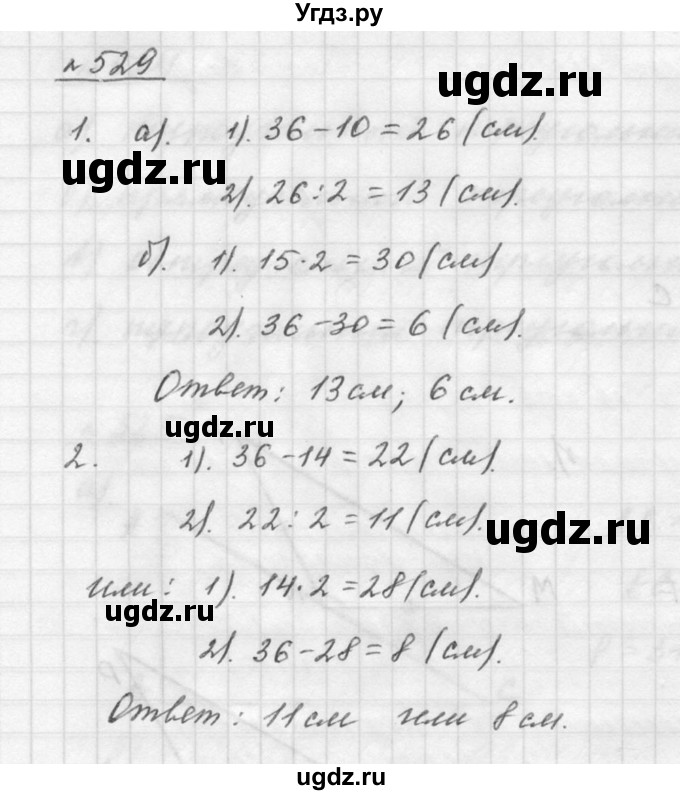 Угдз.ру
№529
ugdz.ru
1. а). 1). 36-10=26(см).
ugdz.ru
2). 26:2=13(см).
б). 1). 15·2=30(см)
2). 36-30=6(см).
Ответ: 13см; 6см.
ugdz.ru
2. 1). 36-14=22(см).
2). 22:2=11(см).
ugdz.ru
или: 1). 14·2=28(см).
ugdz.ru
2). 36-28=8(см).
Ответ: 11см или 8см.
ugdz.ru